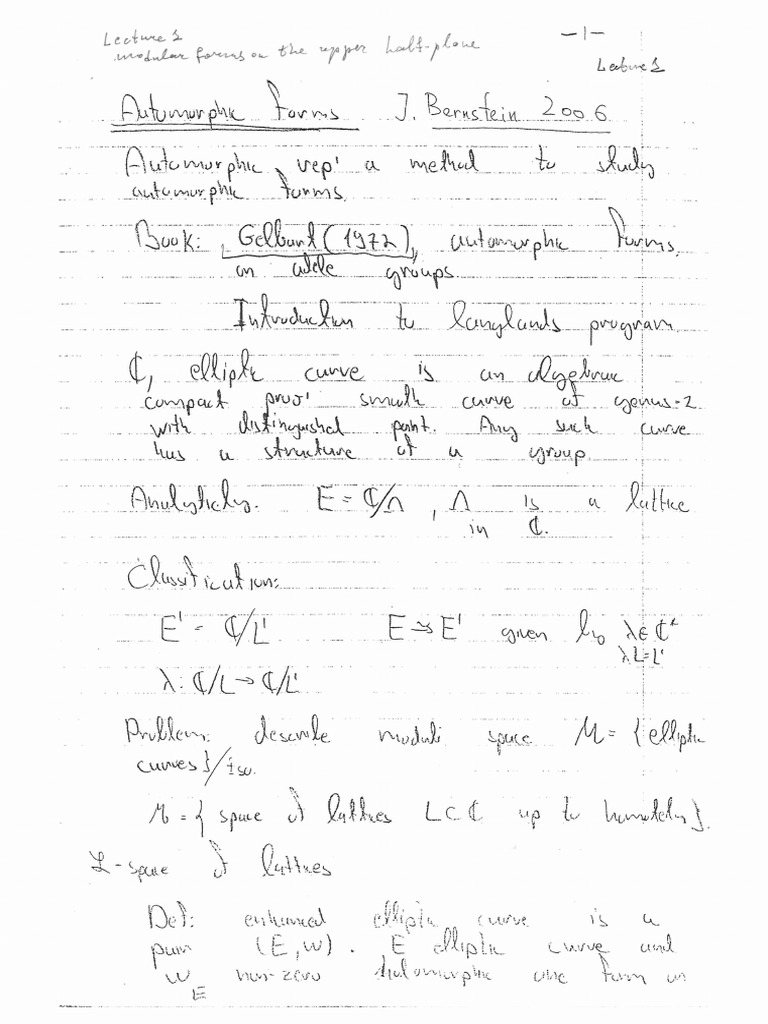 Lecture 1
modular forms on the upper half-plane
-1-
Lecture 1
Automorphic forms J. Bernstein 2006
Automorphic rep' a method to study
automorphic forms.
Book: Gelbart (1972), automorphic forms,
on adele groups.
Introduction to Langlands program
ℂ, elliptic curve is an algebraic
compact proj' smooth curve of genus-1
with distinguished point. Any such curve
has a structure of a group.
Analyticly. E = ℂ/Λ, Λ is a lattice
in ℂ.
Classification:
E' = ℂ/L' E ⥲ E' given by λ∈ℂ*
λL=L'
λ: ℂ/L → ℂ/L'
Problem: describe moduli space M = {elliptic
curves}/iso.
M = { space of lattices L⊂ℂ up to homotety}.
ℒ-space of lattices
Def: enhanced elliptic curve is a
pair (E, w). E elliptic curve and
w non-zero holomorphic one form on
E